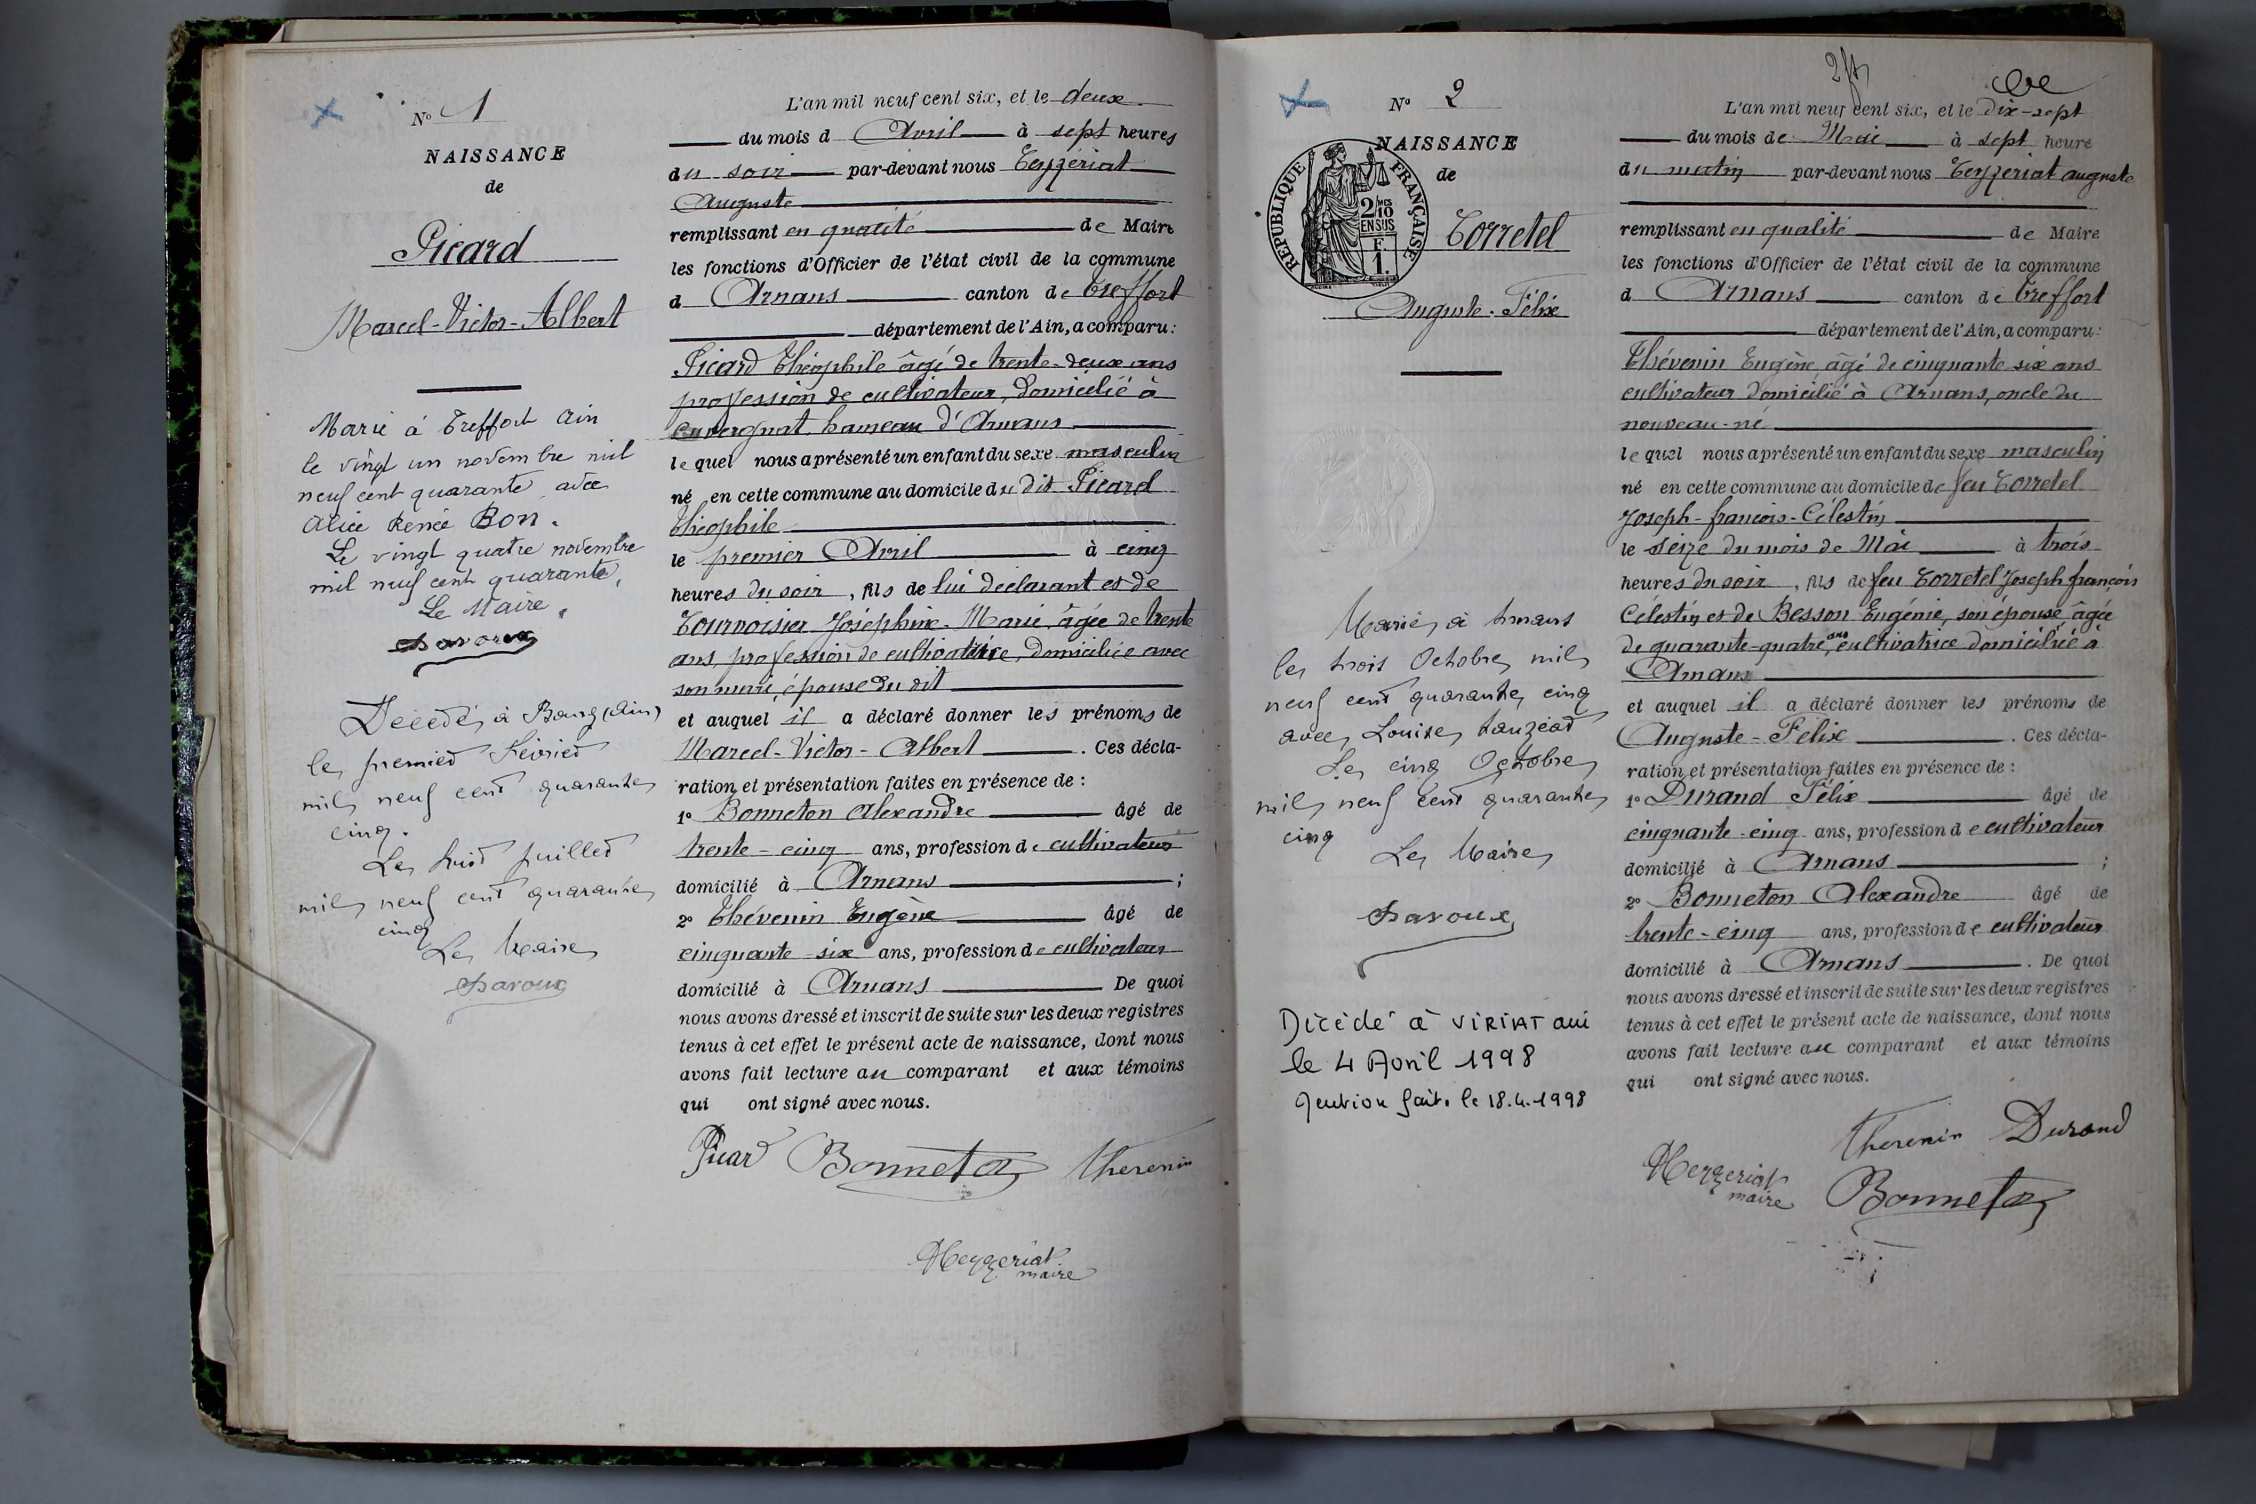 N° 1
NAISSANCE
de
Picard
Marcel-Victor-Albert
Marié à Treffort Ain
le vingt un novembre mil
neuf cent quarante avec
Alice Renée Bon.
Le vingt quatre novembre
mil neuf cent quarante,
Le Maire,
Décédé à Bourg (Ain)
le premier Février
mil neuf cent quarante
cinq.
Le huit juillet
mil neuf cent quarante
cinq
Le Maire
L'an mil neuf cent six, et le deux
du mois d Avril à sept heures
du soir par-devant nous Teyzériat
Auguste
remplissant en qualité de Maire
les fonctions d'Officier de l'état civil de la commune
d Arnans canton de Treffort
département de l'Ain, a comparu:
Picard Théophile âgé de trente-deux ans
profession de cultivateur, domicilié à
hameau d'Arnans
lequel nous a présenté un enfant du sexe masculin
né en cette commune au domicile du dit Picard
Théophile
le premier Avril à cinq
heures du soir, fils de lui déclarant et de
Tournoisier Joséphine-Marie, âgée de trente
ans, profession de cultivatrice, domiciliée avec
son mari, épouse du dit
et auquel il a déclaré donner les prénoms de
Marcel-Victor-Albert. Ces décla-
ration et présentation faites en présence de :
1° Bonneton Alexandre âgé de
trente-cinq ans, profession de cultivateur
domicilié à Arnans ;
2° Thévenin Eugène âgé de
cinquante-six ans, profession de cultivateur
domicilié à Arnans De quoi
nous avons dressé et inscrit de suite sur les deux registres
tenus à cet effet le présent acte de naissance, dont nous
avons fait lecture au comparant et aux témoins
qui ont signé avec nous.
Picard Bonneton Thevenin
Teyzeriat
maire
N° 2
NAISSANCE
de
RÉPUBLIQUE FRANÇAISE
2/10 MES
EN SUS
F.
1.
Torretel
Auguste-Félix
Marié à Arnans
le trois Octobre mil
neuf cent quarante cinq
avec Louise Lauzéat
Le cinq Octobre
mil neuf cent quarante
cinq
Le Maire
Décédé à VIRIAT Ain
le 4 Avril 1998
Mention faite le 18.4.1998
L'an mil neuf cent six, et le Dix-sept
du mois de Mai à sept heure
du matin par-devant nous Teyzériat Auguste
remplissant en qualité de Maire
les fonctions d'Officier de l'état civil de la commune
d Arnans canton de Treffort
département de l'Ain, a comparu:
Thévenin Eugène, âgé de cinquante six ans
cultivateur domicilié à Arnans, oncle du
nouveau-né
lequel nous a présenté un enfant du sexe masculin
né en cette commune au domicile de feu Torretel
Joseph-françois-Célestin
le seize du mois de Mai à trois
heures du soir, fils de feu Torretel Joseph françois
Célestin et de Besson Eugénie, son épouse âgée
de quarante-quatre ans, cultivatrice domiciliée à
Arnans
et auquel il a déclaré donner les prénoms de
Auguste-Félix. Ces décla-
ration et présentation faites en présence de :
1° Durand Félix âgé de
cinquante-cinq ans, profession de cultivateur
domicilié à Arnans ;
2° Bonneton Alexandre âgé de
trente-cinq ans, profession de cultivateur
domicilié à Arnans. De quoi
nous avons dressé et inscrit de suite sur les deux registres
tenus à cet effet le présent acte de naissance, dont nous
avons fait lecture au comparant et aux témoins
qui ont signé avec nous.
Thevenin Durand
Teyzeriat
maire Bonneton